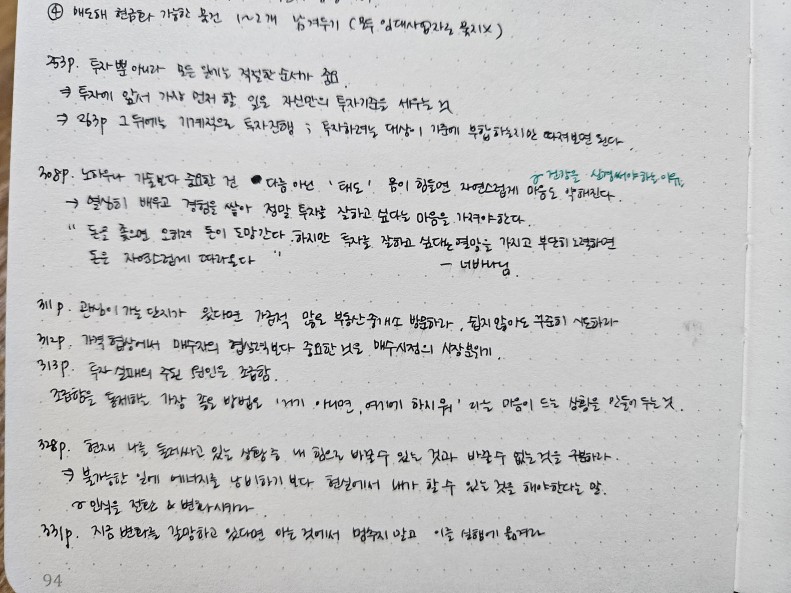 ④ 매도해 현금화 가능한 물건 1~2개 남겨두기 (모두 임대사업자로 묶지X)
253p. 투자뿐 아니라 모든 일에는 적절한 순서가 중요
⇒ 투자에 앞서 가장 먼저 할 일은 자신만의 투자기준을 세우는 것
⇒ 263p 그 뒤에는 기계적으로 투자진행 ; 투자하려는 대상이 기준에 부합하는지만 따져보면 된다.
308p. 노하우나 기술보다 중요한 건 다름 아닌 '태도' 몸이 힘들면 자연스럽게 마음도 약해진다.
건강을 신경써야하는이유
→ 열심히 배우고 경험을 쌓아 정말 투자를 잘하고 싶다는 마음을 가져야한다.
" 돈을 좇으면 오히려 돈이 도망간다. 하지만 투자를 잘하고 싶다는 열망을 가지고 부단히 노력하면
돈은 자연스럽게 따라온다 "
- 너바나님
311p. 관심이 가는 단지가 있다면 가급적 많은 부동산중개소 방문하라. 쉽지 않아도 꾸준히 시도하라
312p. 가격 협상에서 매수자의 협상력보다 중요한 것은 매수시점의 시장분위기.
313p. 투자 실패의 주된 원인은 조급함.
조급함을 통제하는 가장 좋은 방법은 '거기 아니면, 여기에 하지 뭐' 라는 마음이 드는 상황을 만들어 두는 것.
328p. 현재 나를 둘러싸고 있는 상황 중 내 힘으로 바꿀 수 있는 것과 바꿀 수 없는 것을 구분하라.
⇒ 불가능한 일에 에너지를 낭비하기 보다 현실에서 내가 할 수 있는 것을 해야한다는 말.
인식을 전환 & 변화시켜라
331p. 지금 변화를 갈망하고 있다면 아는 것에서 멈추지 말고 이를 실행에 옮겨라
94